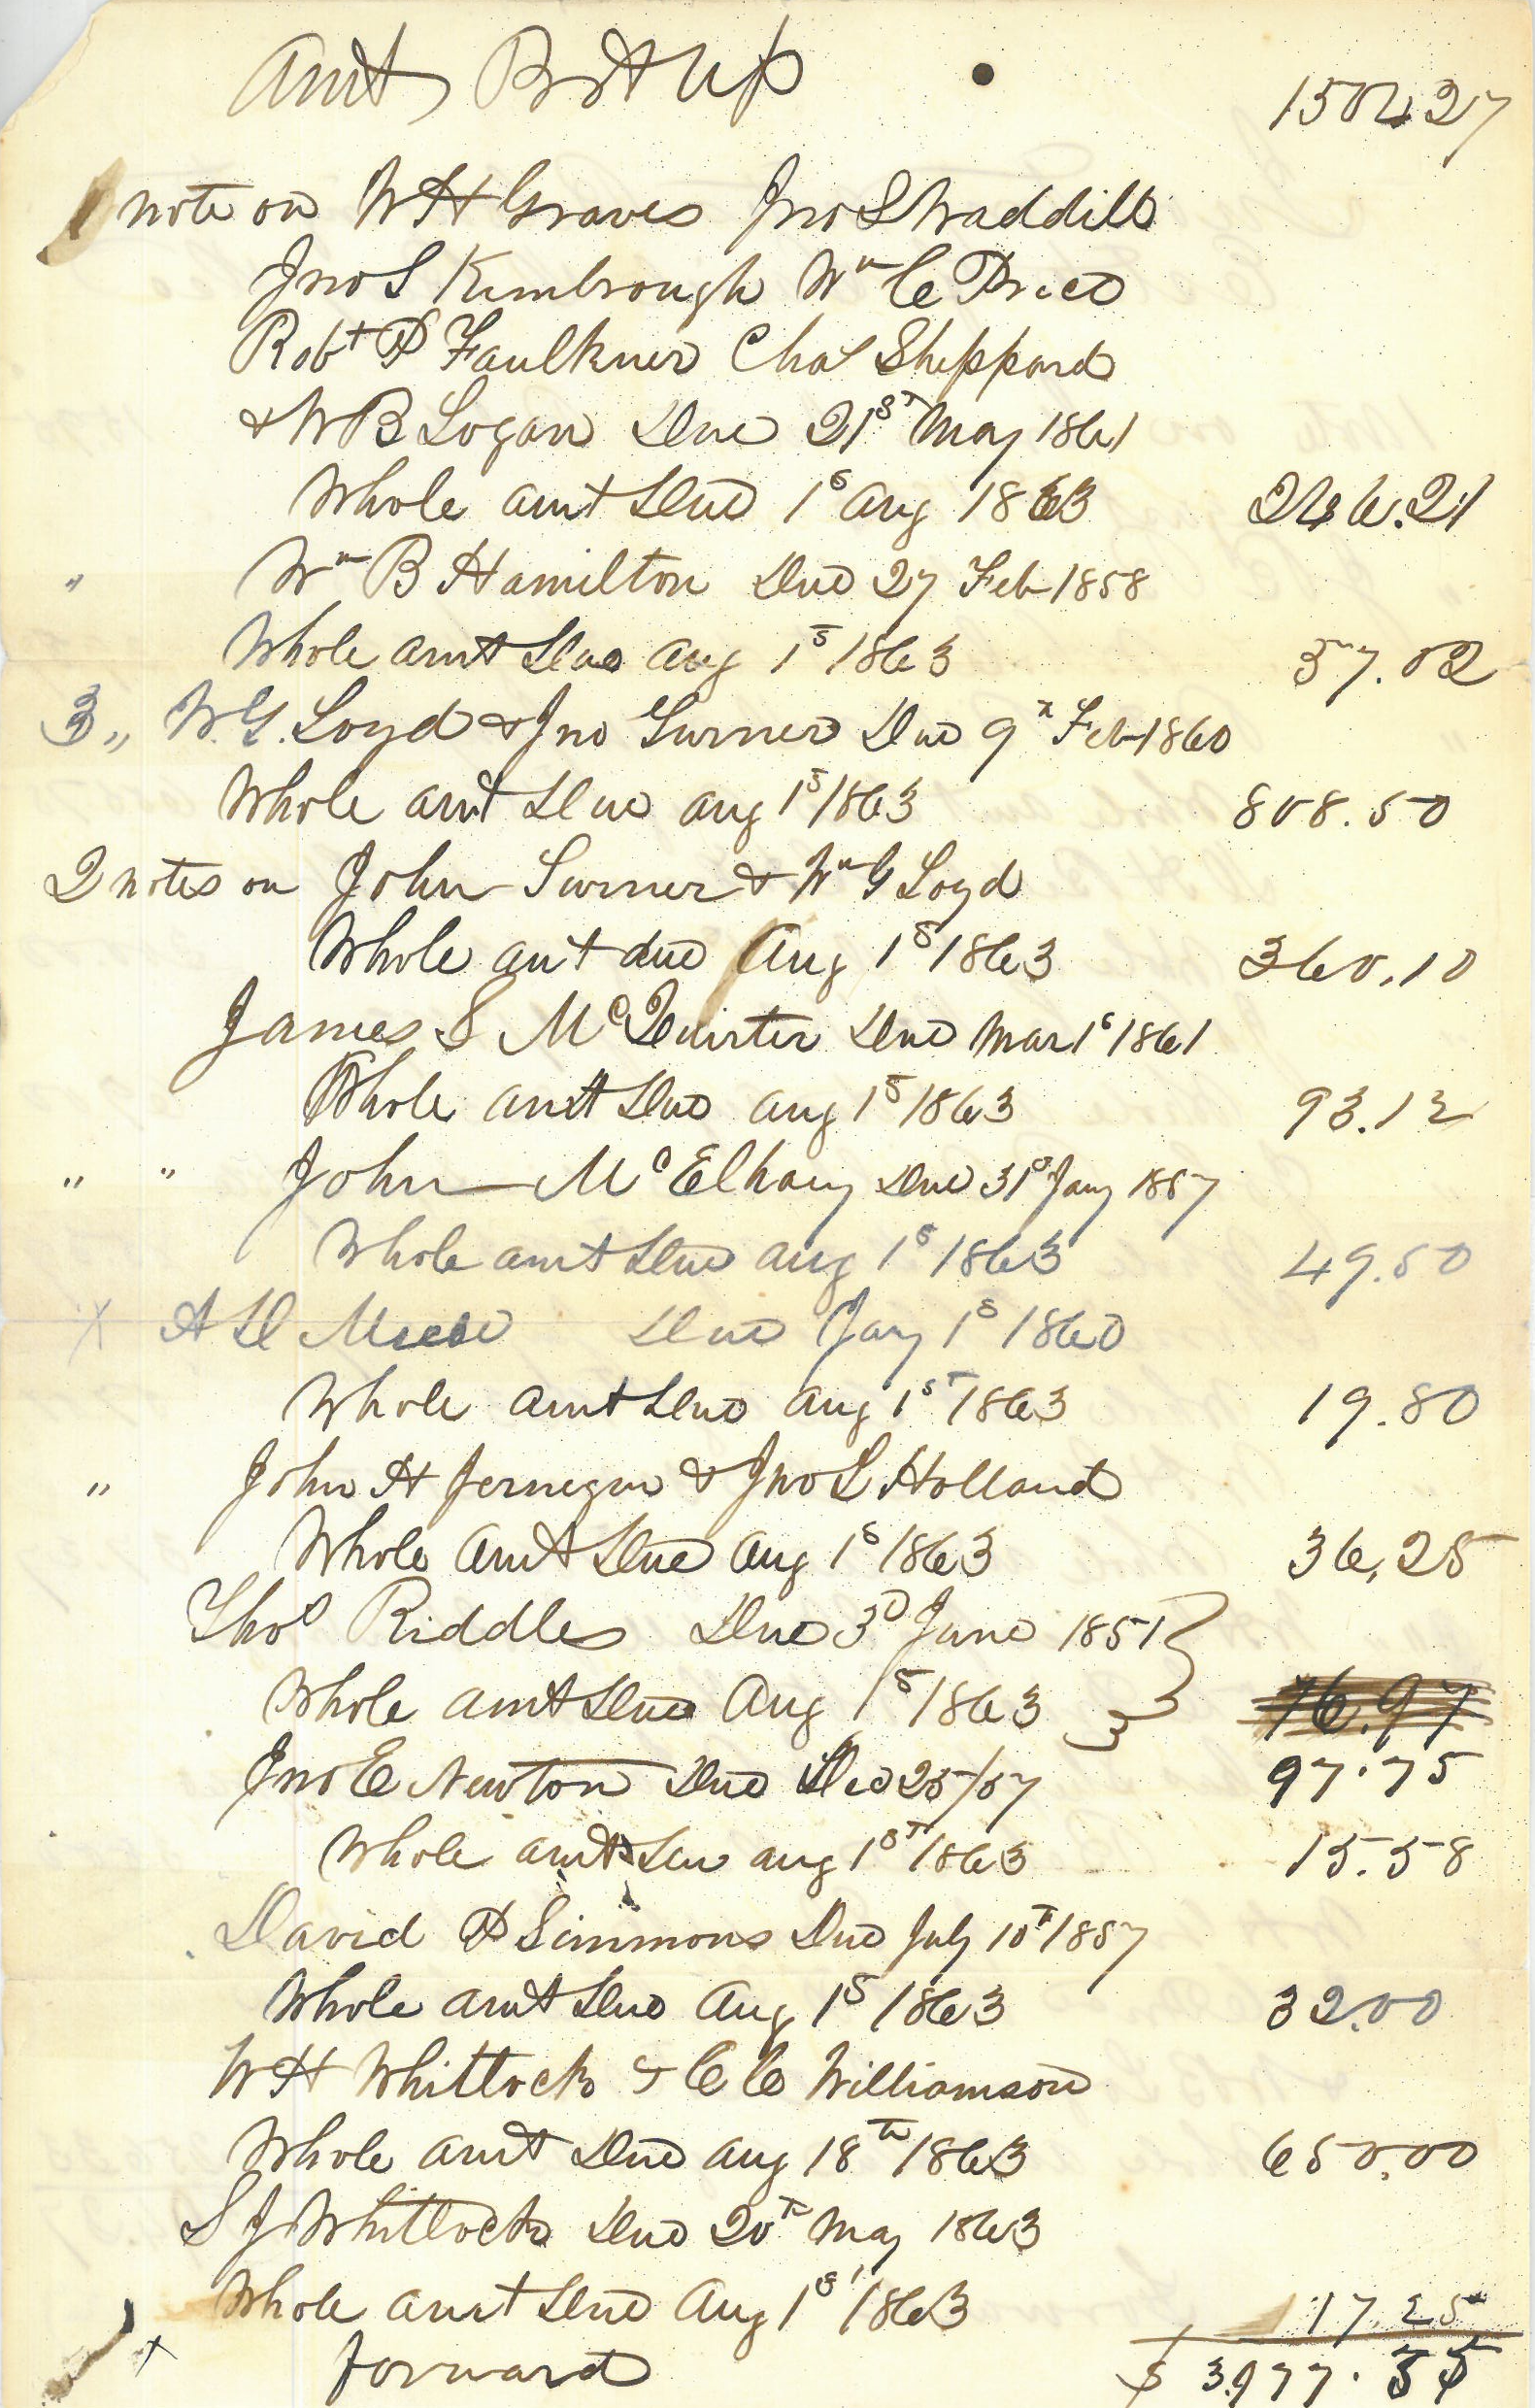 Amt Brt up 1502.27
1 note on W H Graves Jno S Waddill
Jno S Kimbrough Wm C Price
Robt P Faulkner Chas Sheppard
& W B Logan Due 21st May 1861
Whole amt Due 1s Aug 1863 246.21
" Wm B Hamilton Due 27 Feb 1858
Whole amt Due Aug 1s 1863 57.02
3 " W. G. Loyd & Jno Turner Due 9th Feb 1860
Whole amt Due Aug 1s 1863 808.50
2 notes on John Turner & Wm G Loyd
Whole amt due Aug 1s 1863 360.10
James S McQuirter Due Mar 1s 1861
Whole amt Due Aug 1s 1863 93.12
" " John McElhany Due 31s Jany 1857
Whole amt Due Aug 1s 1863 49.50
X A D Due Jany 1s 1860
Whole amt Due Aug 1st 1863 19.80
" John H Jernegin & Jno L Holland
Whole Amt Due Aug 1s 1863 36.25
Thos Riddles Due 3d June 1851
Whole amt Due Aug 1s 1863 76.97
Jno E Newton Due Dec 25/57 97.75
Whole amt Due Aug 1st 1863 15.58
David P Simmons Due July 10th 1857
Whole amt Due Aug 1s 1863 32.00
W H Whitlock & C C Williamson
Whole amt Due Aug 18th 1863 650.00
S J Whitlock Due 20th May 1863
Whole amt Due Aug 1st 1863 17.25
x forward $ 3977.55